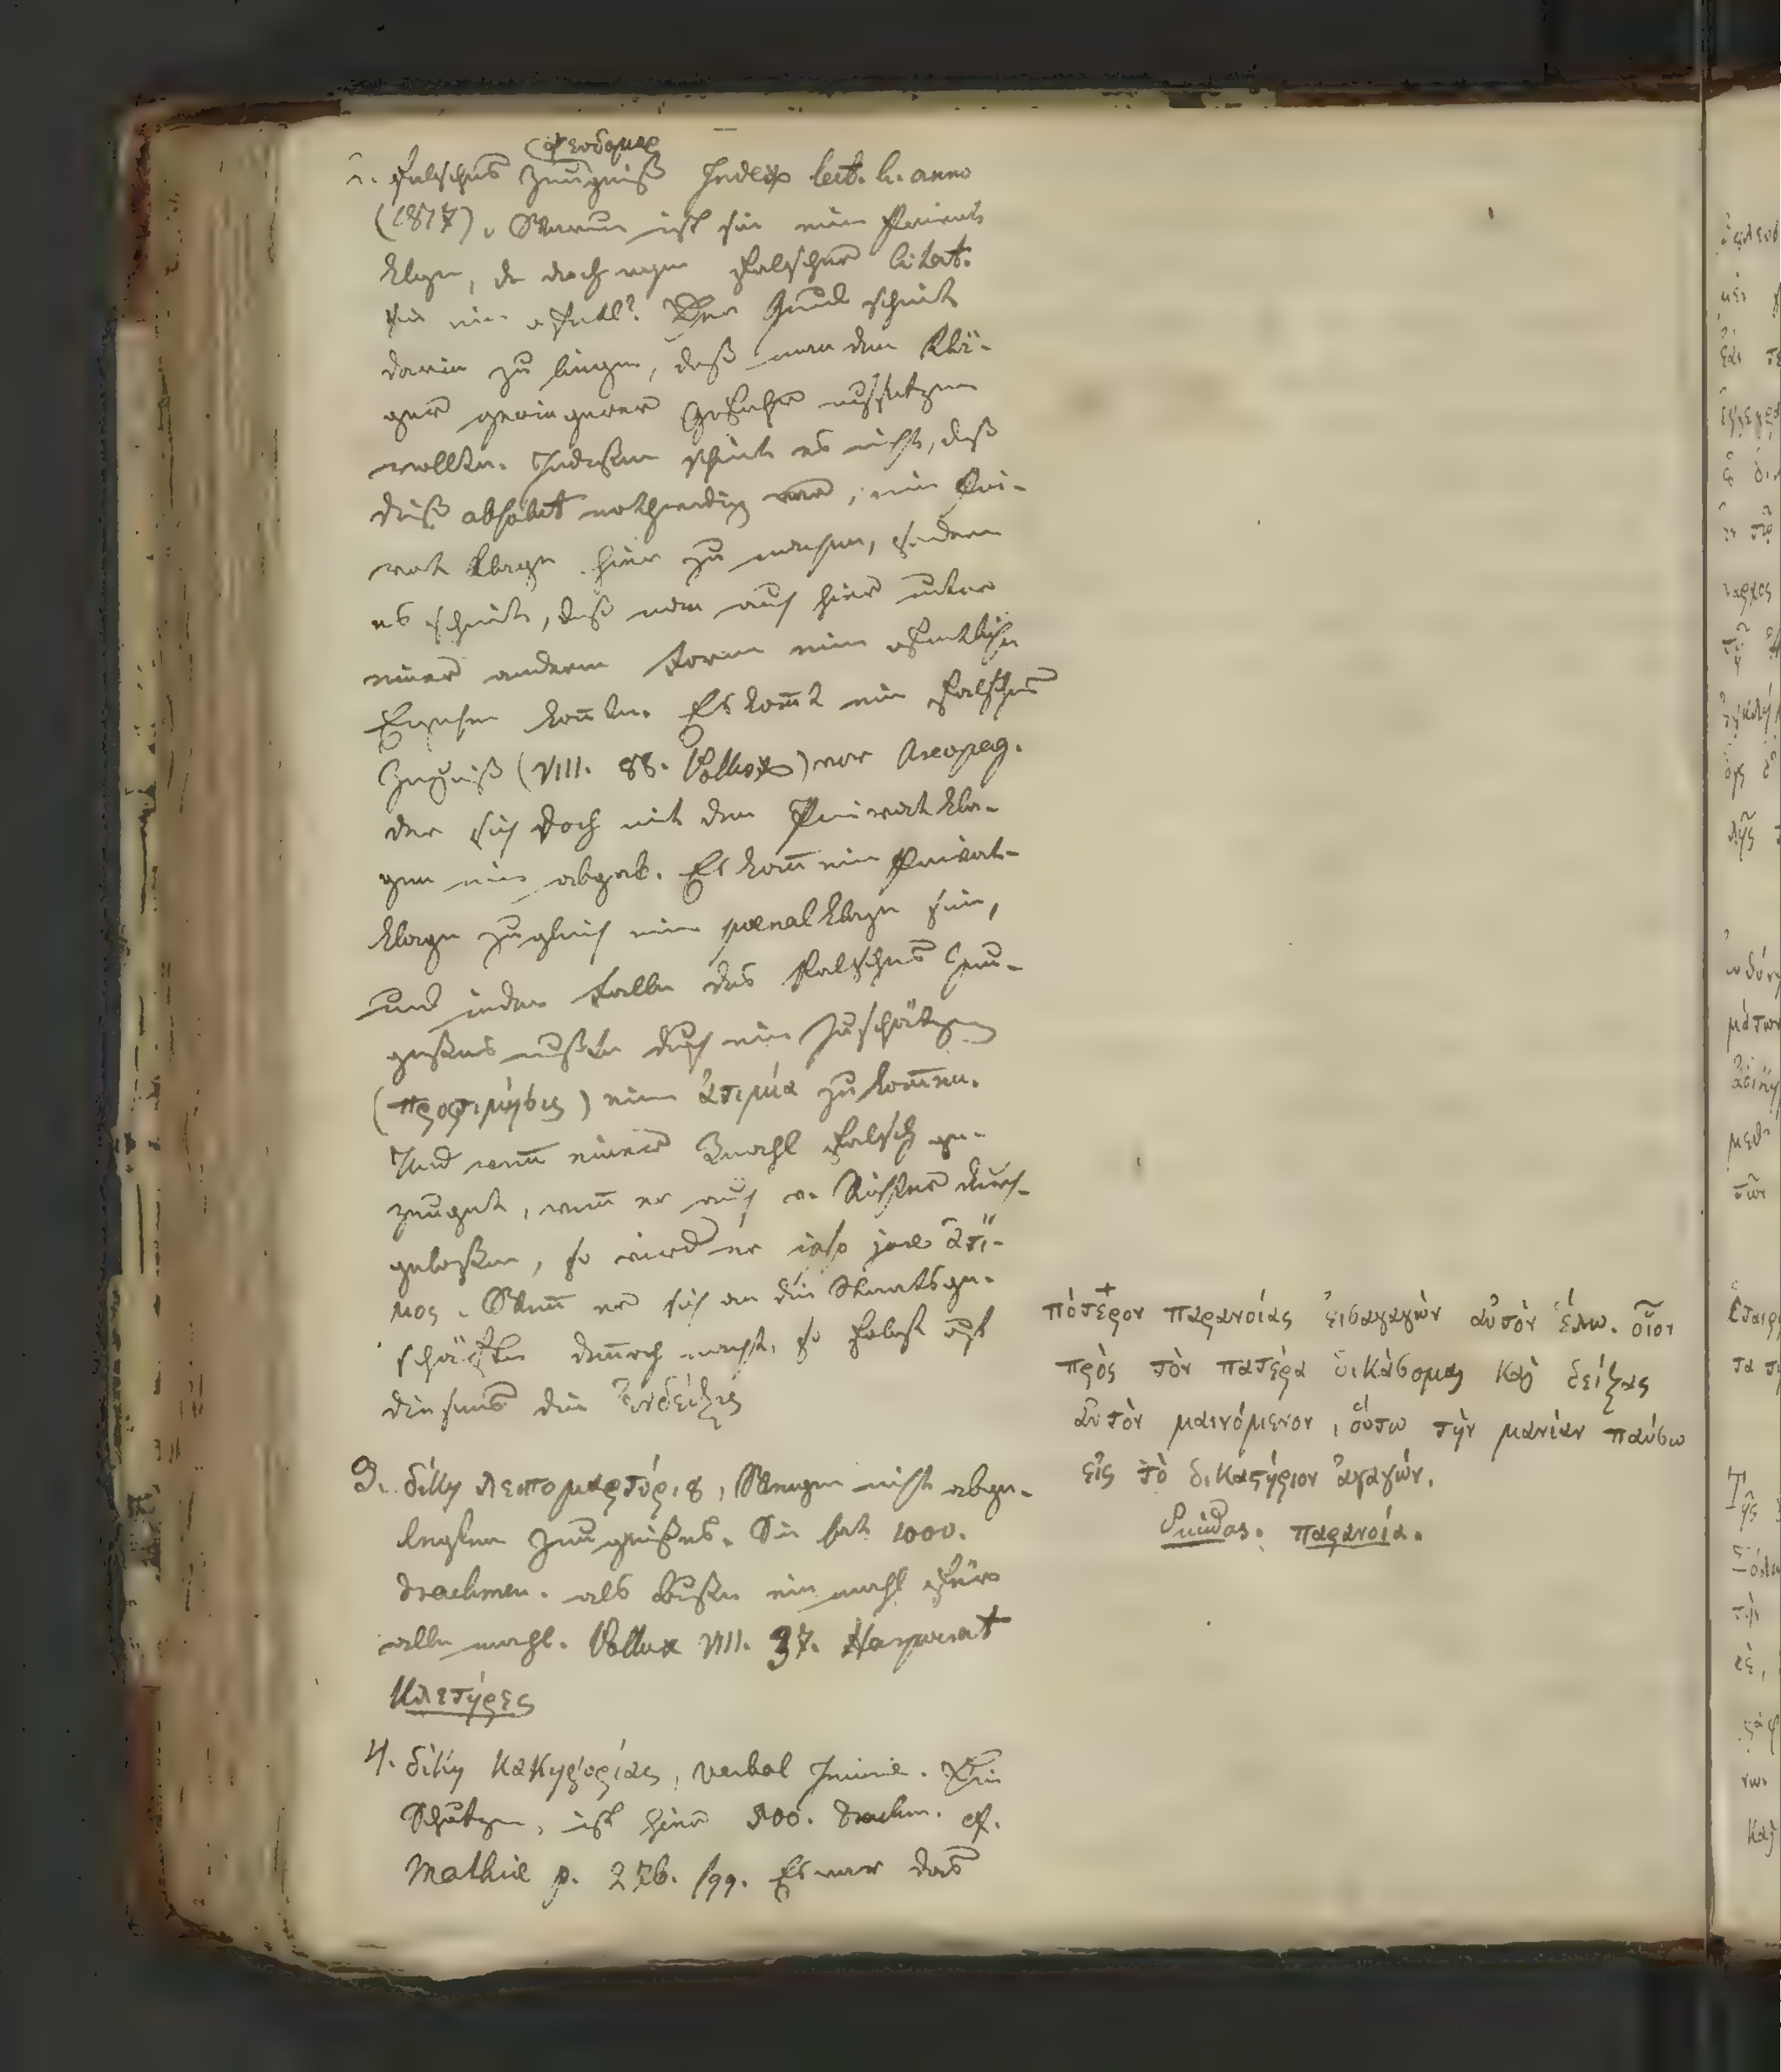 (ψευδομαρ
2. Falsches Zeugniß Index lect. h. anno
(1817). Warum ist sie eine Privat
klage, da doch wegen falscher citat.
sie eine öffentl? Der Grund scheint
darin zu liegen, daß man den Klä-
ger geringerer Gefahr aussetzen
wollte. Indessen scheint es nicht, daß
dieß absolut nothwendig war, eine Pri-
vat klage hier zu machen, sondern
es scheint, daß man auch hier unter
einer anderen Form eine öffentliche
konte. Es komt ein falsches
Zeugniß (VIII. 88. Pollux) vor Areopag.
der sich doch mit den Privatkla-
gen nie abgab. Es kann eine Privat-
klage zugleich eine poenal klage sein,
und in dem Falle des falschen Zeu-
gnißes mußte durch ein Zuschätzen
(προστιμήσις) eine ἀτιμία zu kommen.
Und wenn einer 3mahl falsch ge-
zeugt, wenn er auch v. Richter durch-
gelassen, so wird er ipso jure ἄτι-
μος. Wenn er sich an die Staatsge-
schäfte dennoch macht, so folgt
die ἔνδειξις
3. δίκη λειπομαρτύριȣ, Wegen nicht abge-
legten Zeugnißes. Sie hat 1000.
Drachmen. als Buße ein mahl für
alle mahl. Pollux VIII. 37. Harpocrat
Κλετήρες
4. δίκη κακηγορίας, verbal Injurie. Kein
Schätzen, ist hier 500. Drachm. cf.
Mathiä p. 276. sqq. Es war das
πότερον παρανοίας εἰσαγαγὼν αὐτὸν ἕλω. οἷον
πρὸς τὸν πατέρα δικάσομαι καὶ δείξας
αὐτὸν μαινόμενον, οὕτω τὴν μανίαν παύσω
εἰς τὸ δικαστήριον ἀγαγών.
Suidas. παρανοία.